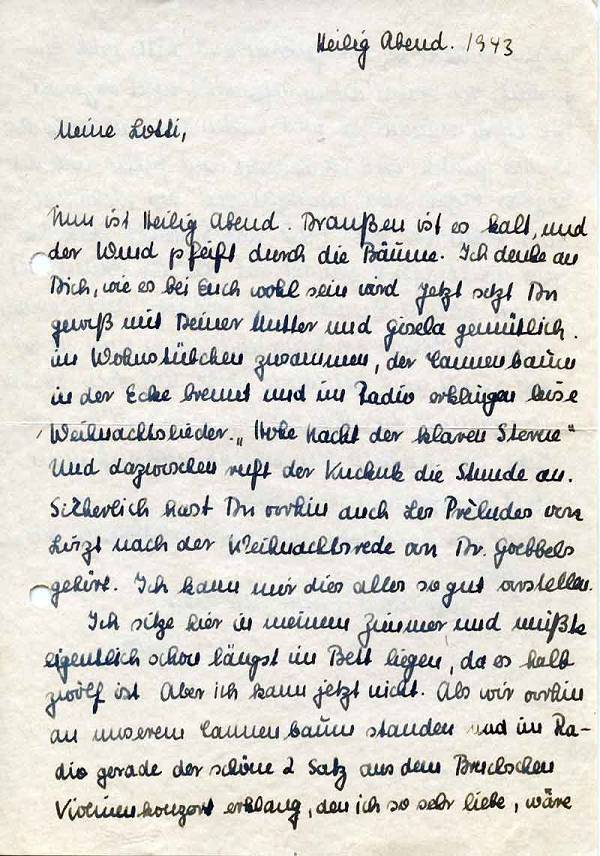 Heilig Abend. 1943
Meine Lotti,
Nun ist Heilig Abend. Draußen ist es kalt, und
der Wind pfeift durch die Bäume. Ich denke an
Dich, wie es bei Euch wohl sein wird Jetzt sitzt Du
gewiß mit Deiner Mutter und Gisela gemütlich.
im Wohnstübchen zusammen, der Tannenbaum
in der Ecke brennt und im Radio erklingen leise
Weihnachtslieder. „Hohe Nacht der klaren Sterne"
Und dazwischen ruft der Kuckuk die Stunde an.
Sicherlich hast Du vorhin auch Les Préludes von
Liszt nach der Weihnachtsrede von Dr. Goebbels
gehört. Ich kann mir dies alles so gut vorstellen.
Ich sitze hier in meinem Zimmer und müßte
eigentlich schon längst im Bett liegen, da es halb
zwölf ist Aber ich kann jetzt nicht. Als wir vorhin
an unserem Tannenbaum standen und im Ra-
dio gerade der schöne 2 Satz aus dem Bruchschen
Violinenkonzert erklang, den ich so sehr liebe, wäre